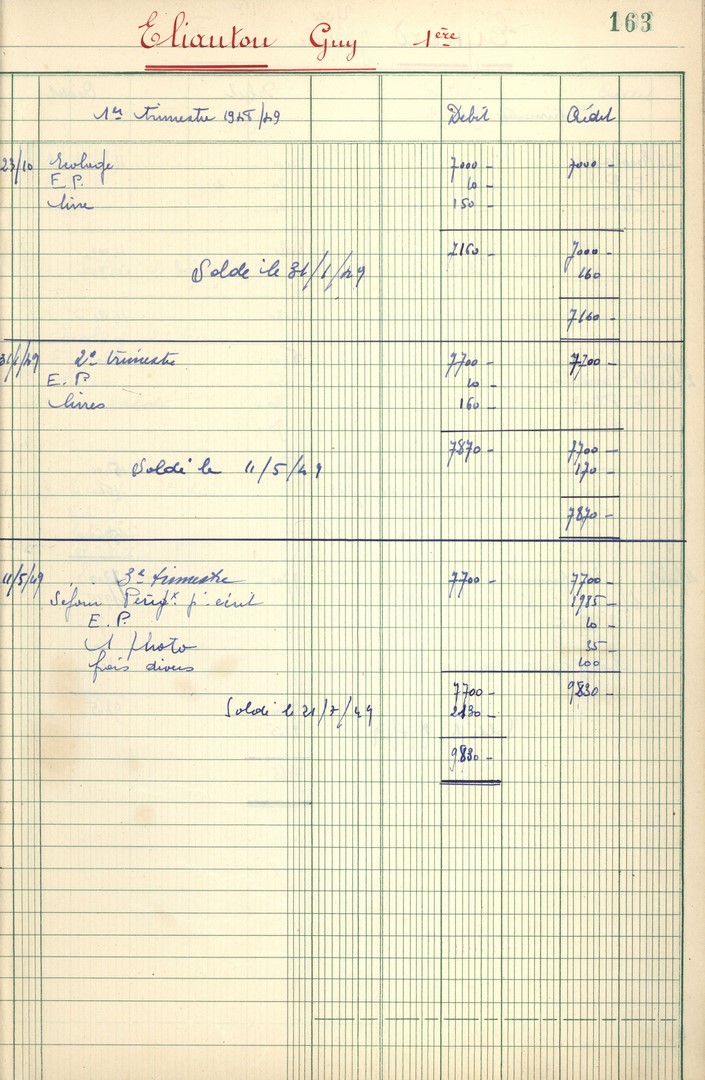 163
Eliautou Guy 1ère
1er trimestre 1948/49 Débit Crédit
23/10 Ecolage 7000 - 7000 -
E.P. 10 -
livre 150 -
7160 - 7000 -
Soldé le 31/1/49 160
7160 -
31/1/49 2e trimestre 7700 - 7700 -
E.P 10 -
livres 160 -
7870 - 7700 -
Soldé le 11/5/49 170 -
7870 -
11/5/49 3e trimestre 7700 - 7700 -
Séjour 1985 -
E.P. 10 -
1 photo 35 -
frais divers 100
7700 - 9830 -
Soldé le 21/7/49 2130 -
9830 -